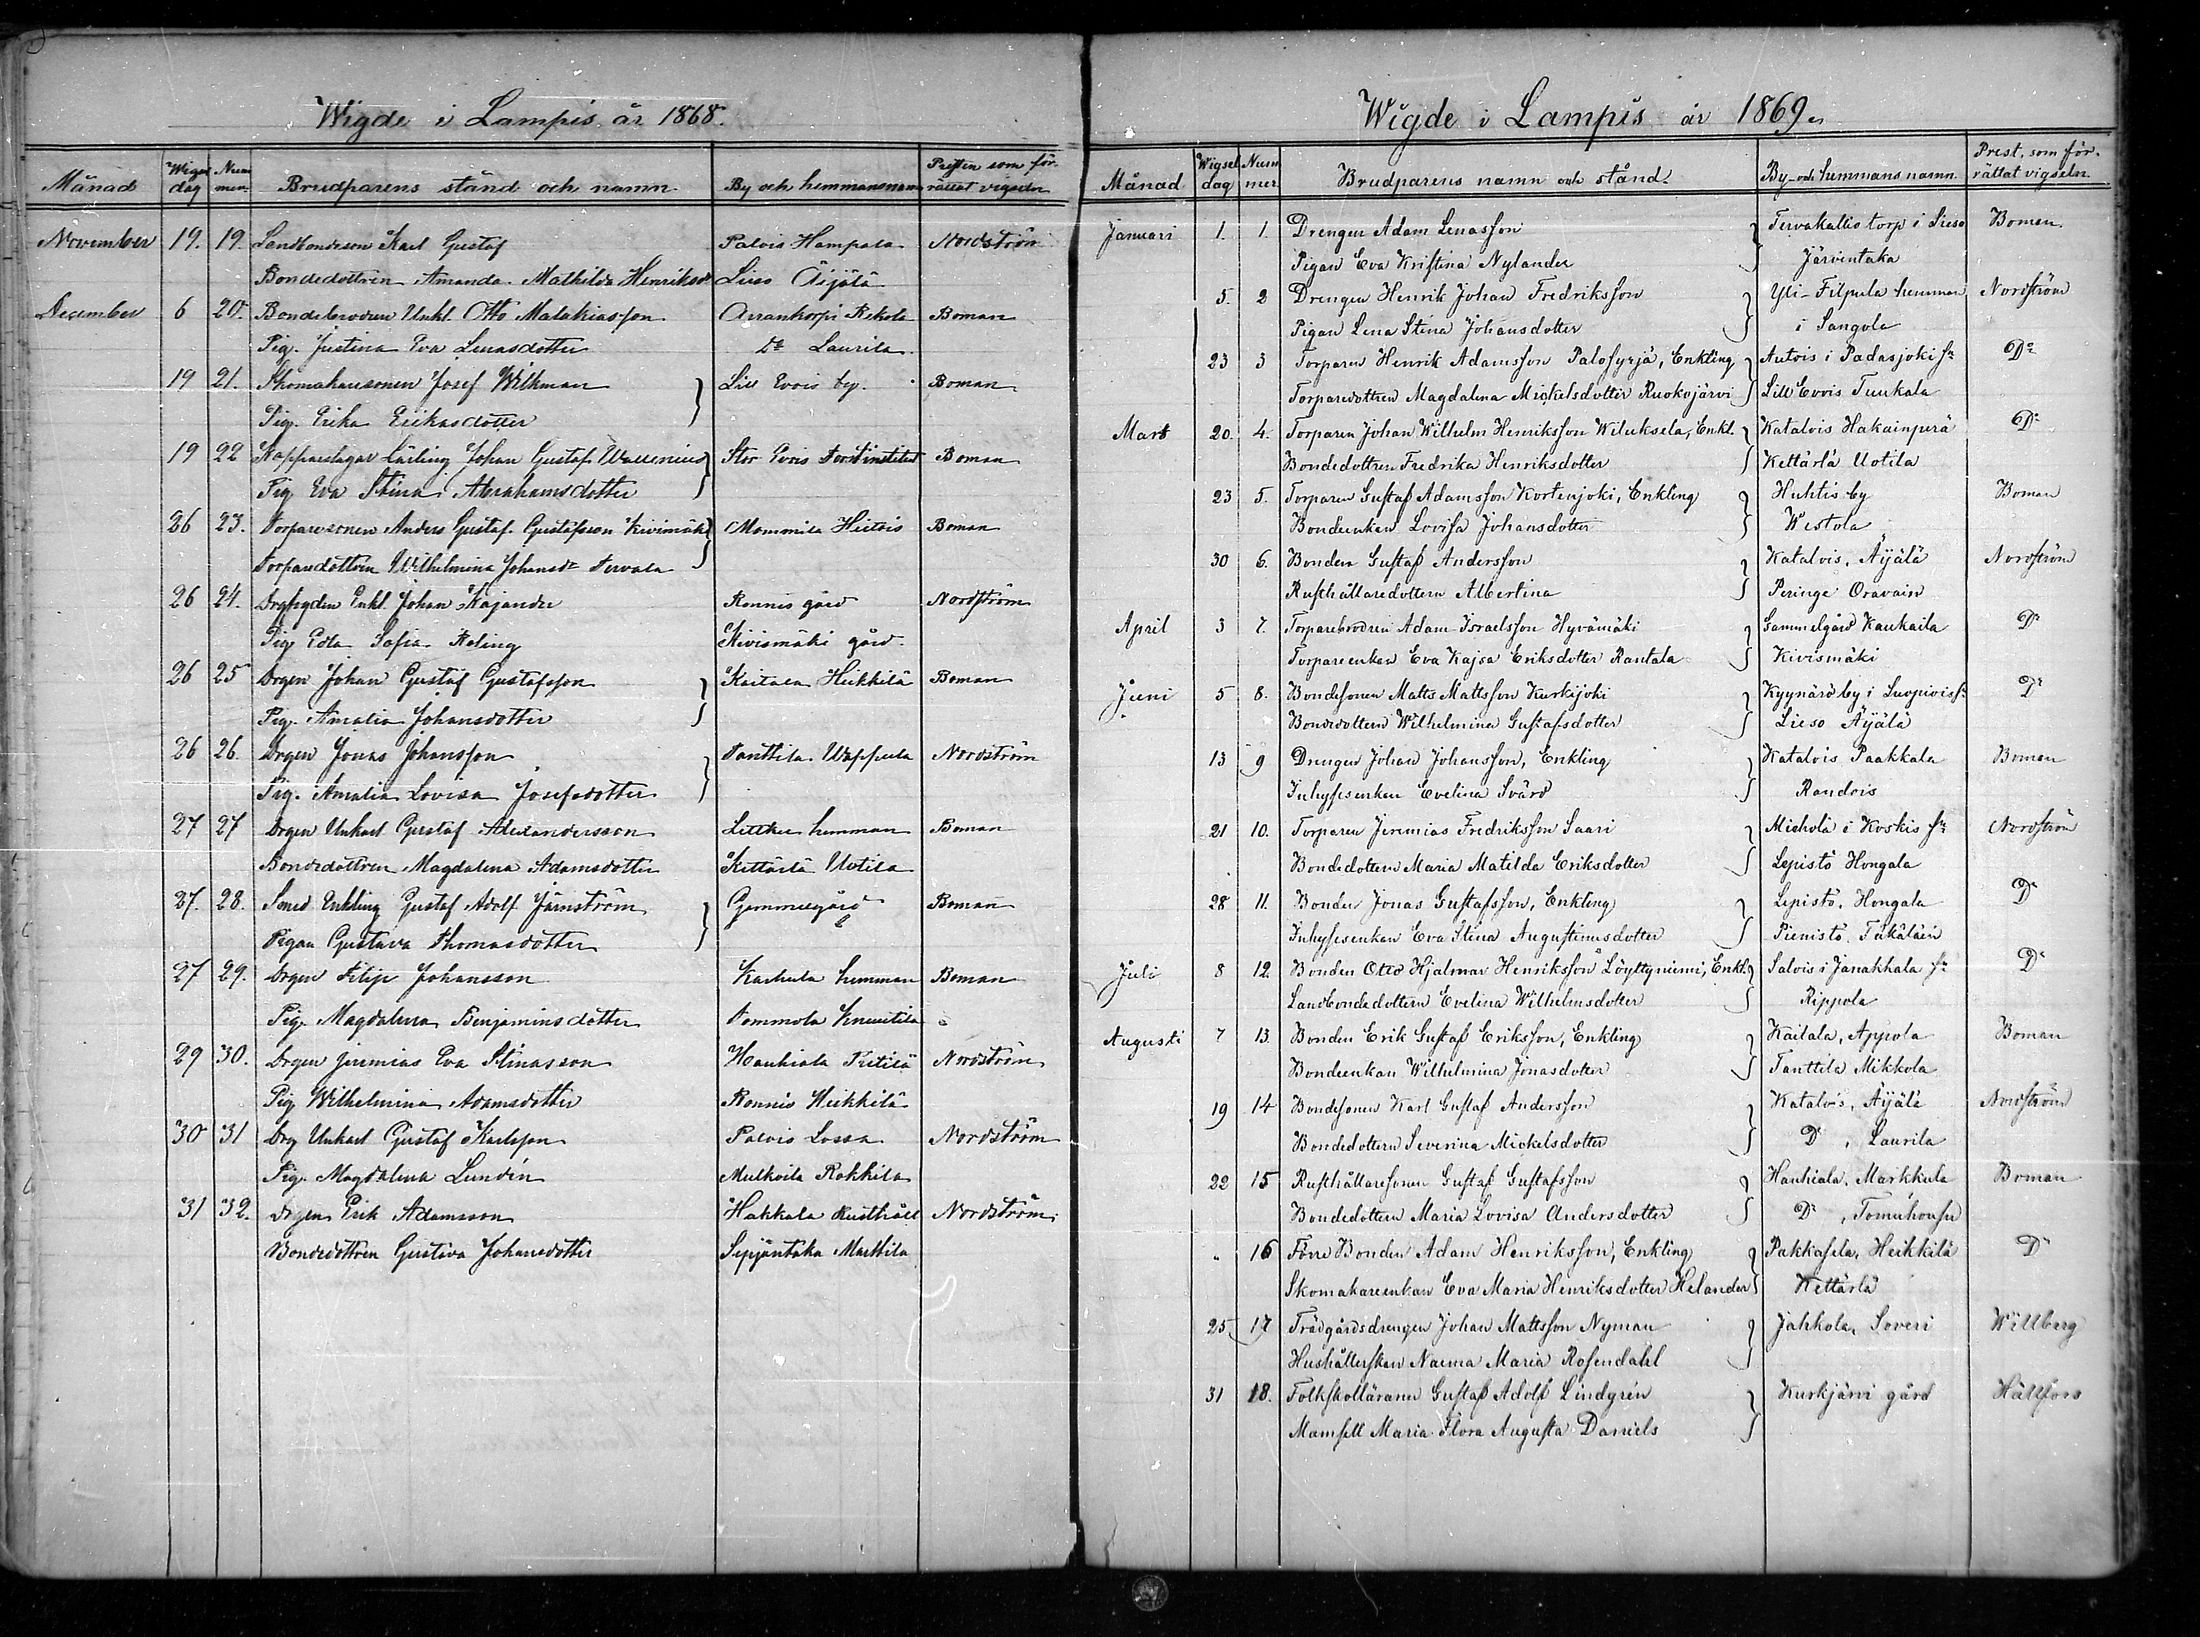 Wigde i Lampis år 1868.
Månad Wigsel dag Nummer. Brudparens stånd och namn By och hemmansnamn Presten som förrättat vigseln
November 19. 19. Landbondeson Karl Gustaf Palois Hampala Nordström
Bondedottren Amanda Mathilda Henriksdr Lieso Äijälä
December 6 20. Bondebrodren Enkl. Otto Malakiasson Arrankorpi Rekola Boman
Pig. Justina Eva Lenasdotter Do Laurila
19 21. Skomakaresonen Josef Wilkman Lill Evois by. Boman
Pig. Erika Eriksdotter
19 22 Kopparslagar Lärling Johan Gustaf Wallenius Stor Evois Forstinstitut Boman
Pig Eva Stina Abrahamsdotter
26 23. Torparesonen Anders Gustaf Gustafsson Kivimäki Mommila Hietois Boman
Torparedottren Wilhelmina Johansdr Tervala
26 24. Enkl. Johan Kajander Ronnis gård Nordström
Pig Edla Sofia Roling Kivismäki gård
26 25 Drgen Johan Gustaf Gustafsson Kaitala Heikkilä Boman
Pig. Amalia Johansdotter
26 26. Drgen Jonas Johansson Tanttila Uappula Nordström
Pig. Amalia Lovisa Josefsdotter
27 27 Drgen Enkarl Gustaf Alexandersson hemman Boman
Bondedottren Magdalena Adamsdotter Kettärlä Uotila
27. 28. Smed Enkling Gustaf Adolf Järnström Gammelgård Boman
Pigan Gustava Thomasdotter
27 29. Drgen Filip Johansson Karhula hemman Boman
Pig. Magdalena Benjaminsdotter Tommola Knuutila
29 30. Drgen Jeremias Eva Stinasson Hauhiala Pietilä Nordström
Pig Wilhelmina Adamsdotter Ronnis Heikkilä
30 31 Drg Enkarl Gustaf Karlsson Palois Lossa Nordström
Pig. Magdalena Lundén Mulkoila Rokkila
31 32. Drgen Erik Adamsson Hakkala Rusthåll Nordström
Bondedottren Gustava Johansdotter Syrjäntaka Marttila
Wigde i Lampis år 1869.
Månad Wigsel dag Nummer. Brudparens namn och stånd. By- och hemmansnamn. Prest, som förrättat vigseln
Januari 1. 1. Drengen Adam Lenasson Tervakallio torp i Lieso Boman
Pigan Eva Kristina Nylander Järventaka
5. 2 Drengen Henrik Johan Fredriksson Yli-Filpula hemman Nordström
Pigan Lena Stina Johansdotter i Sangola
23 3 Torparen Henrik Adamsson Palosyrjä, Enkling Autois i Padasjoki sn Do
Torparedottren Magdalena Mickelsdotter Ruokojärvi Lill Evois Tuukala
Mars 20. 4. Torparen Johan Wilhelm Henriksson Wiluksela, Enkl. Katalois Hakainperä Do
Bondedottren Fredrika Henriksdotter Kettärlä Uotila
23 5. Torparen Gustaf Adamsson Kortenjoki, Enkling Huhtis by Boman
Bondeenkan Lovisa Johansdotter Westola
30 6. Bonden Gustaf Andersson Katalois, Äyälä Nordström
Rusthållaredottern Albertina Peringe Oravain
April 3 7. Torparebrodren Adam Israelsson Hyvämäki Gammelgård Kaukaila Do
Torpareenkan Eva Kajsa Eriksdotter Rantala Kivismäki
Juni 5 8. Bondesonen Matts Mattsson Kurkijoki Kyynärö by i Luopiois sn Do
Bondedottern Wilhelmina Gustafsdotter Lieso Äyälä
13 9 Drengen Johan Johansson, Enkling Katalois Paakkala Boman
Inhysesenkan Evelina Svärd Rondois
21 10. Torparen Jeremias Fredriksson Saari Miehola i Koskis sn Nordström
Bondedottern Maria Matilda Eriksdotter Lepistö Hongala
28 11. Bonden Jonas Gustafsson, Enkling Lepistö, Hongala Do
Inhysesenkan Eva Stina Augustinusdotter Pienistö
Juli 8 12. Bonden Otto Hjalmar Henriksson Löyttyniemi, Enkl. Salois i Janakkala sn Do
Landbondedottern Evelina Wilhelmsdotter Rippola
Augusti 7 13. Bonden Erik Gustaf Eriksson, Enkling Kaitala, Appola Boman
Bondeenkan Wilhelmina Jonasdotter Tanttila Mikkola
19 14 Bondesonen Karl Gustaf Andersson Katalois, Äyälä Nordström
Bondedottern Severina Mickelsdotter Do, Laurila
22 15 Rusthållaresonen Gustaf Gustafsson Hauhiala, Markkula Boman
Bondedottern Maria Lovisa Andersdotter Do,
" 16 Förre Bonden Adam Henriksson, Enkling Pakkasela, Heikkilä Do
Skomakareenkan Eva Maria Henriksdotter Helander Kettärlä
25 17 Trädgårdsdrengen Johan Mattsson Nyman Jahkola, Soveri Willberg
Hushållerskan Naema Maria Rosendahl
31 18. Folkskolläraren Gustaf Adolf Lindgrén Kurkjärvi gård Hällfors
Mamsell Maria Flora Augusta Daniels